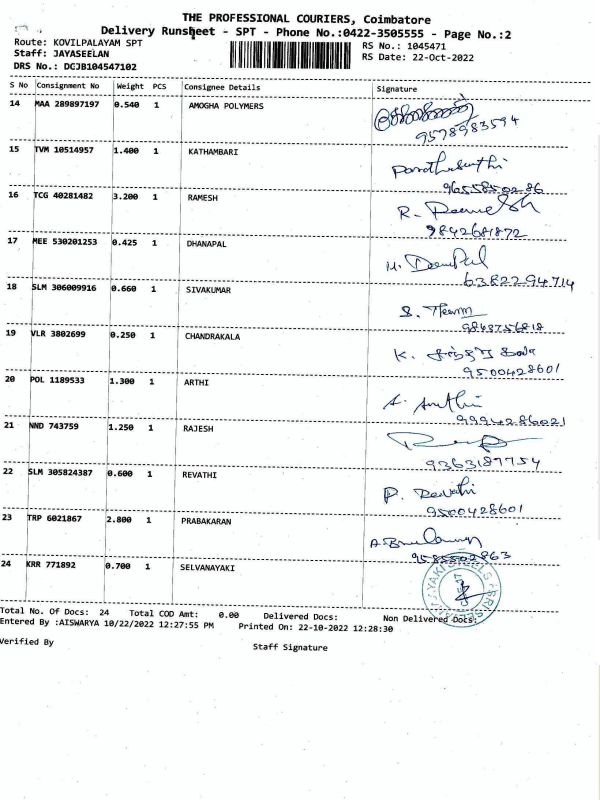 THE PROFESSIONAL COURIERS, Coimbatore
Delivery Runsheet - SPT - Phone No.:0422-3505555 - Page No.:2
Route: KOVILPALAYAM SPT
Staff: JAYASEELAN
DRS No.: DCJB104547102
RS No.: 1045471
RS Date: 22-Oct-2022
S No Consignment No Weight PCS Consignee Details Signature
14 MAA 289897197 0.540 1 AMOGHA POLYMERS
9578983594
15 TVM 10514957 1.400 1 KATHAMBARI
9655850286
16 TCG 40281482 3.200 1 RAMESH
R. Ramesh
9842681872
17 MEE 530201253 0.425 1 DHANAPAL
6382294714
18 SLM 306009916 0.660 1 SIVAKUMAR
9843756818
19 VLR 3802699 0.250 1 CHANDRAKALA
K. சந்திரகலா
9500428601
20 POL 1189533 1.300 1 ARTHI
A. Arthi
9994286021
21 NND 743759 1.250 1 RAJESH
9363187754
22 SLM 305824387 0.600 1 REVATHI
P. Revathi
9500428601
23 TRP 6021867 2.800 1 PRABAKARAN
24 KRR 771892 0.700 1 SELVANAYAKI
Total No. Of Docs: 24 Total COD Amt: 0.00 Delivered Docs: Non Delivered Docs:
Entered By :AISWARYA 10/22/2022 12:27:55 PM Printed On: 22-10-2022 12:28:30
Verified By
Staff Signature